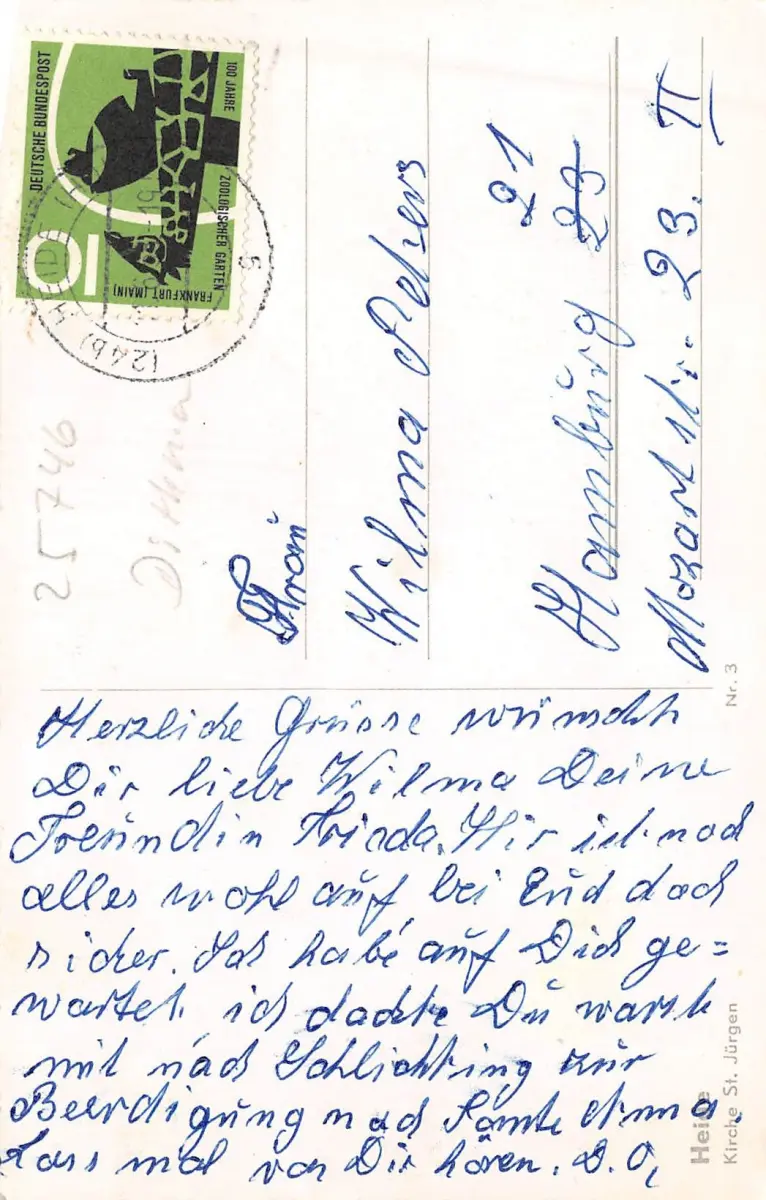 DEUTSCHE BUNDESPOST
100 JAHRE
ZOOLOGISCHER GARTEN
FRANKFURT (MAIN)
10
(24b) HEIDE
5
25746
Frau
Wilma Peters
21
Hamburg 23
Mozartstr. 23. II
Nr. 3
Herzliche Grüsse wünscht
Dir liebe Wilma Deine
Freundin Frieda. Wir ist noch
alles wohl auf bei Eud doch
sicher. Ich habe auf Dich ge=
wartet. ich dachte Du warst
mit nach Schlichting zur
Beerdigung nach Tante Anna.
Lass mal von Dir hören. D. O,
Heide
Kirche St. Jürgen